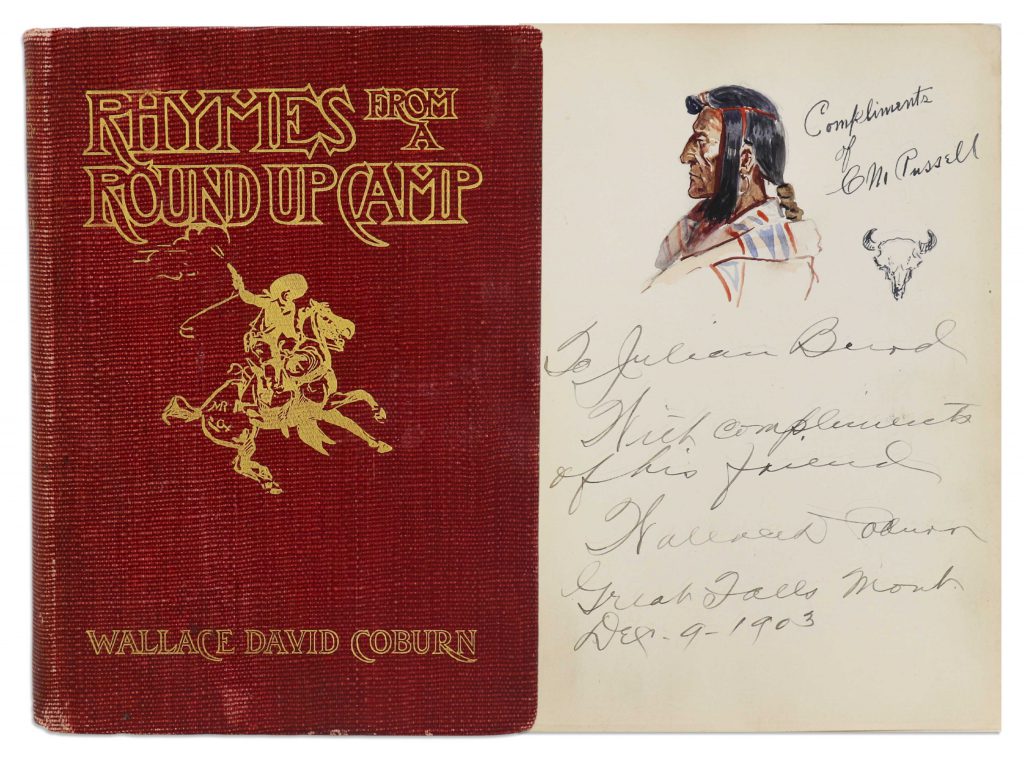 RHYMES FROM A
ROUND UP CAMP
WALLACE DAVID COBURN
Compliments
of
C M Russell
To Julian
With compliments
of his friend
Wallace D Coburn
Great Falls Mont.
Dec. 9-1903